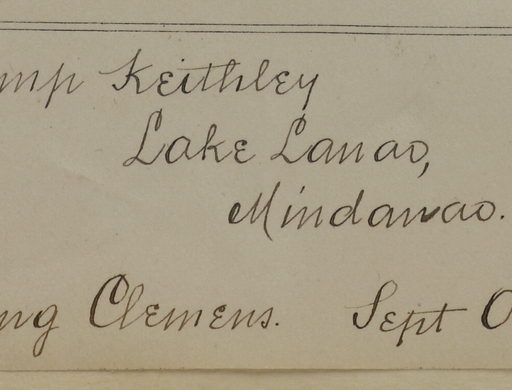 mp Keithley
Lake Lanao,
Mindanao.
ng Clemens. Sept O